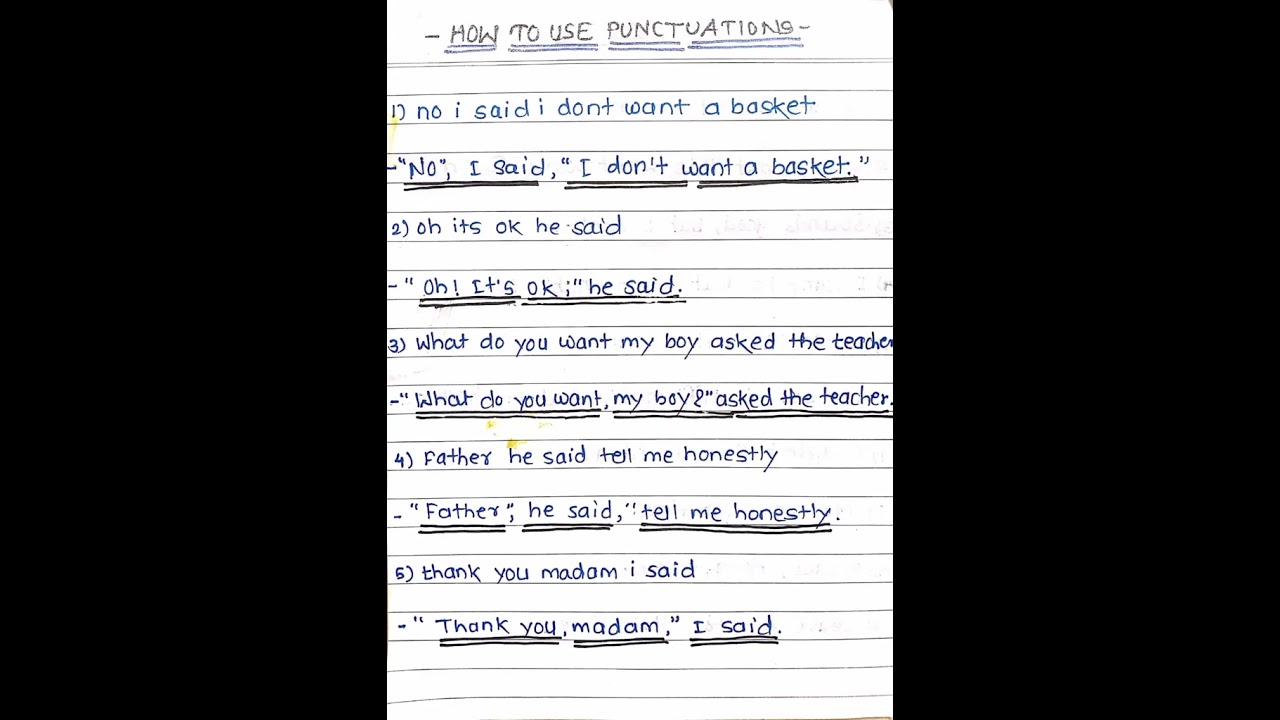 - HOW TO USE PUNCTUATIONS -
1) no i said i dont want a basket
- "No", I said, "I don't want a basket."
2) oh its ok he said
- "Oh! It's ok;" he said.
3) What do you want my boy asked the teacher
- "What do you want, my boy?" asked the teacher.
4) Father he said tell me honestly
- "Father", he said, "tell me honestly.
5) thank you madam i said
- "Thank you, madam," I said.